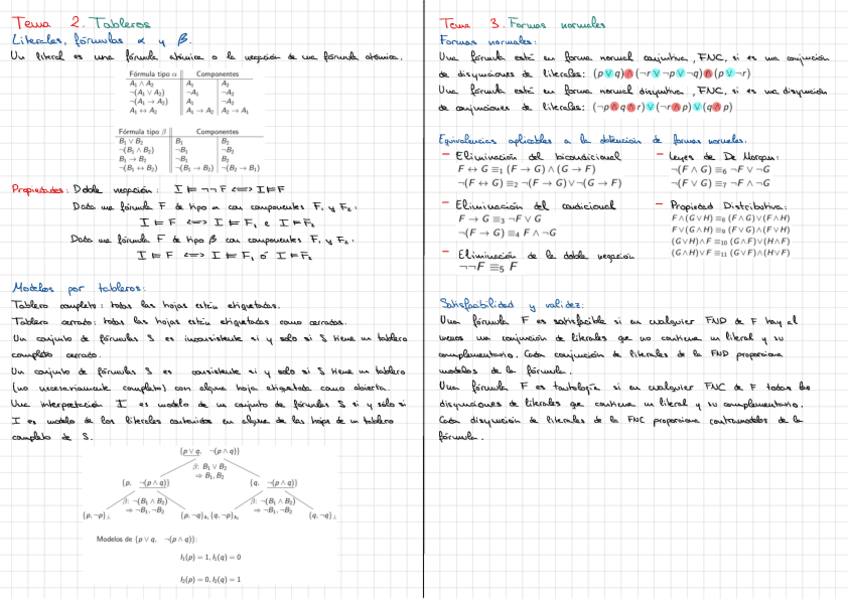 Tema 2. Tableros
Literales, fórmulas α y β.
Un literal es una fórmula atómica o la negación de una fórmula atómica.
Fórmula tipo α Componentes
A₁ ∧ A₂ A₁ A₂
¬(A₁ ∨ A₂) ¬A₁ ¬A₂
¬(A₁ → A₂) A₁ ¬A₂
A₁ ↔ A₂ A₁ → A₂ A₂ → A₁
Fórmula tipo β Componentes
B₁ ∨ B₂ B₁ B₂
¬(B₁ ∧ B₂) ¬B₁ ¬B₂
B₁ → B₂ ¬B₁ B₂
¬(B₁ ↔ B₂) ¬(B₁ → B₂) ¬(B₂ → B₁)
Propiedades: Doble negación: I ⊨ ¬¬F <=> I ⊨ F
Dada una fórmula F de tipo α con componentes F₁ y F₂:
I ⊨ F <=> I ⊨ F₁ e I ⊨ F₂
Dada una fórmula F de tipo β con componentes F₁ y F₂:
I ⊨ F <=> I ⊨ F₁ ó I ⊨ F₂
Modelos por tableros:
Tablero completo: todas las hojas están etiquetadas.
Tablero cerrado: todas las hojas están etiquetadas como cerradas.
Un conjunto de fórmulas S es inconsistente si y solo si S tiene un tablero
completo cerrado.
Un conjunto de fórmulas S es consistente si y solo si S tiene un tablero
(no necesariamente completo) con alguna hoja etiquetada como abierta.
Una interpretación I es modelo de un conjunto de fórmulas S si y sólo si
I es modelo de los literales contenidos en alguna de las hojas de un tablero
completo de S.
{p ∨ q, ¬(p ∧ q)}
β: B₁ ∨ B₂
⇒ B₁, B₂
{p, ¬(p ∧ q)} {q, ¬(p ∧ q)}
β: ¬(B₁ ∧ B₂) β: ¬(B₁ ∧ B₂)
⇒ ¬B₁, ¬B₂ ⇒ ¬B₁, ¬B₂
{p, ¬p}⊥ {p, ¬q} {q, ¬p} {q, ¬q}⊥
Modelos de {p ∨ q, ¬(p ∧ q)}:
I₁(p) = 1, I₁(q) = 0
I₂(p) = 0, I₂(q) = 1
Tema 3. Formas normales
Formas normales:
Una fórmula está en forma normal conjuntiva, FNC, si es una conjunción
de disyunciones de literales: (p ∨ q) ∧ (¬r ∨ ¬p ∨ ¬q) ∧ (p ∨ ¬r)
Una fórmula está en forma normal disyuntiva, FND, si es una disyunción
de conjunciones de literales: (¬p ∧ q ∧ r) ∨ (¬r ∧ p) ∨ (q ∧ p)
Equivalencias aplicables a la obtención de formas normales:
– Eliminación del bicondicional
F ↔ G ≡₁ (F → G) ∧ (G → F)
¬(F ↔ G) ≡₂ ¬(F → G) ∨ ¬(G → F)
– Eliminación del condicional
F → G ≡₃ ¬F ∨ G
¬(F → G) ≡₄ F ∧ ¬G
– Eliminación de la doble negación
¬¬F ≡₅ F
– Leyes de De Morgan:
¬(F ∧ G) ≡₆ ¬F ∨ ¬G
¬(F ∨ G) ≡₇ ¬F ∧ ¬G
– Propiedad Distributiva:
F∧(G∨H) ≡₈ (F∧G)∨(F∧H)
F∨(G∧H) ≡₉ (F∨G)∧(F∨H)
(G∨H)∧F ≡₁₀ (G∧F)∨(H∧F)
(G∧H)∨F ≡₁₁ (G∨F)∧(H∨F)
Satisfacibilidad y validez:
Una fórmula F es satisfacible si en cualquier FND de F hay al
menos una conjunción de literales que no contiene un literal y su
complementario. Cada conjunción de literales de la FND proporciona
modelos de la fórmula.
Una fórmula F es tautología si en cualquier FNC de F todas las
disyunciones de literales que contiene un literal y su complementario.
Cada disyunción de literales de la FNC proporciona contramodelos de la
fórmula.